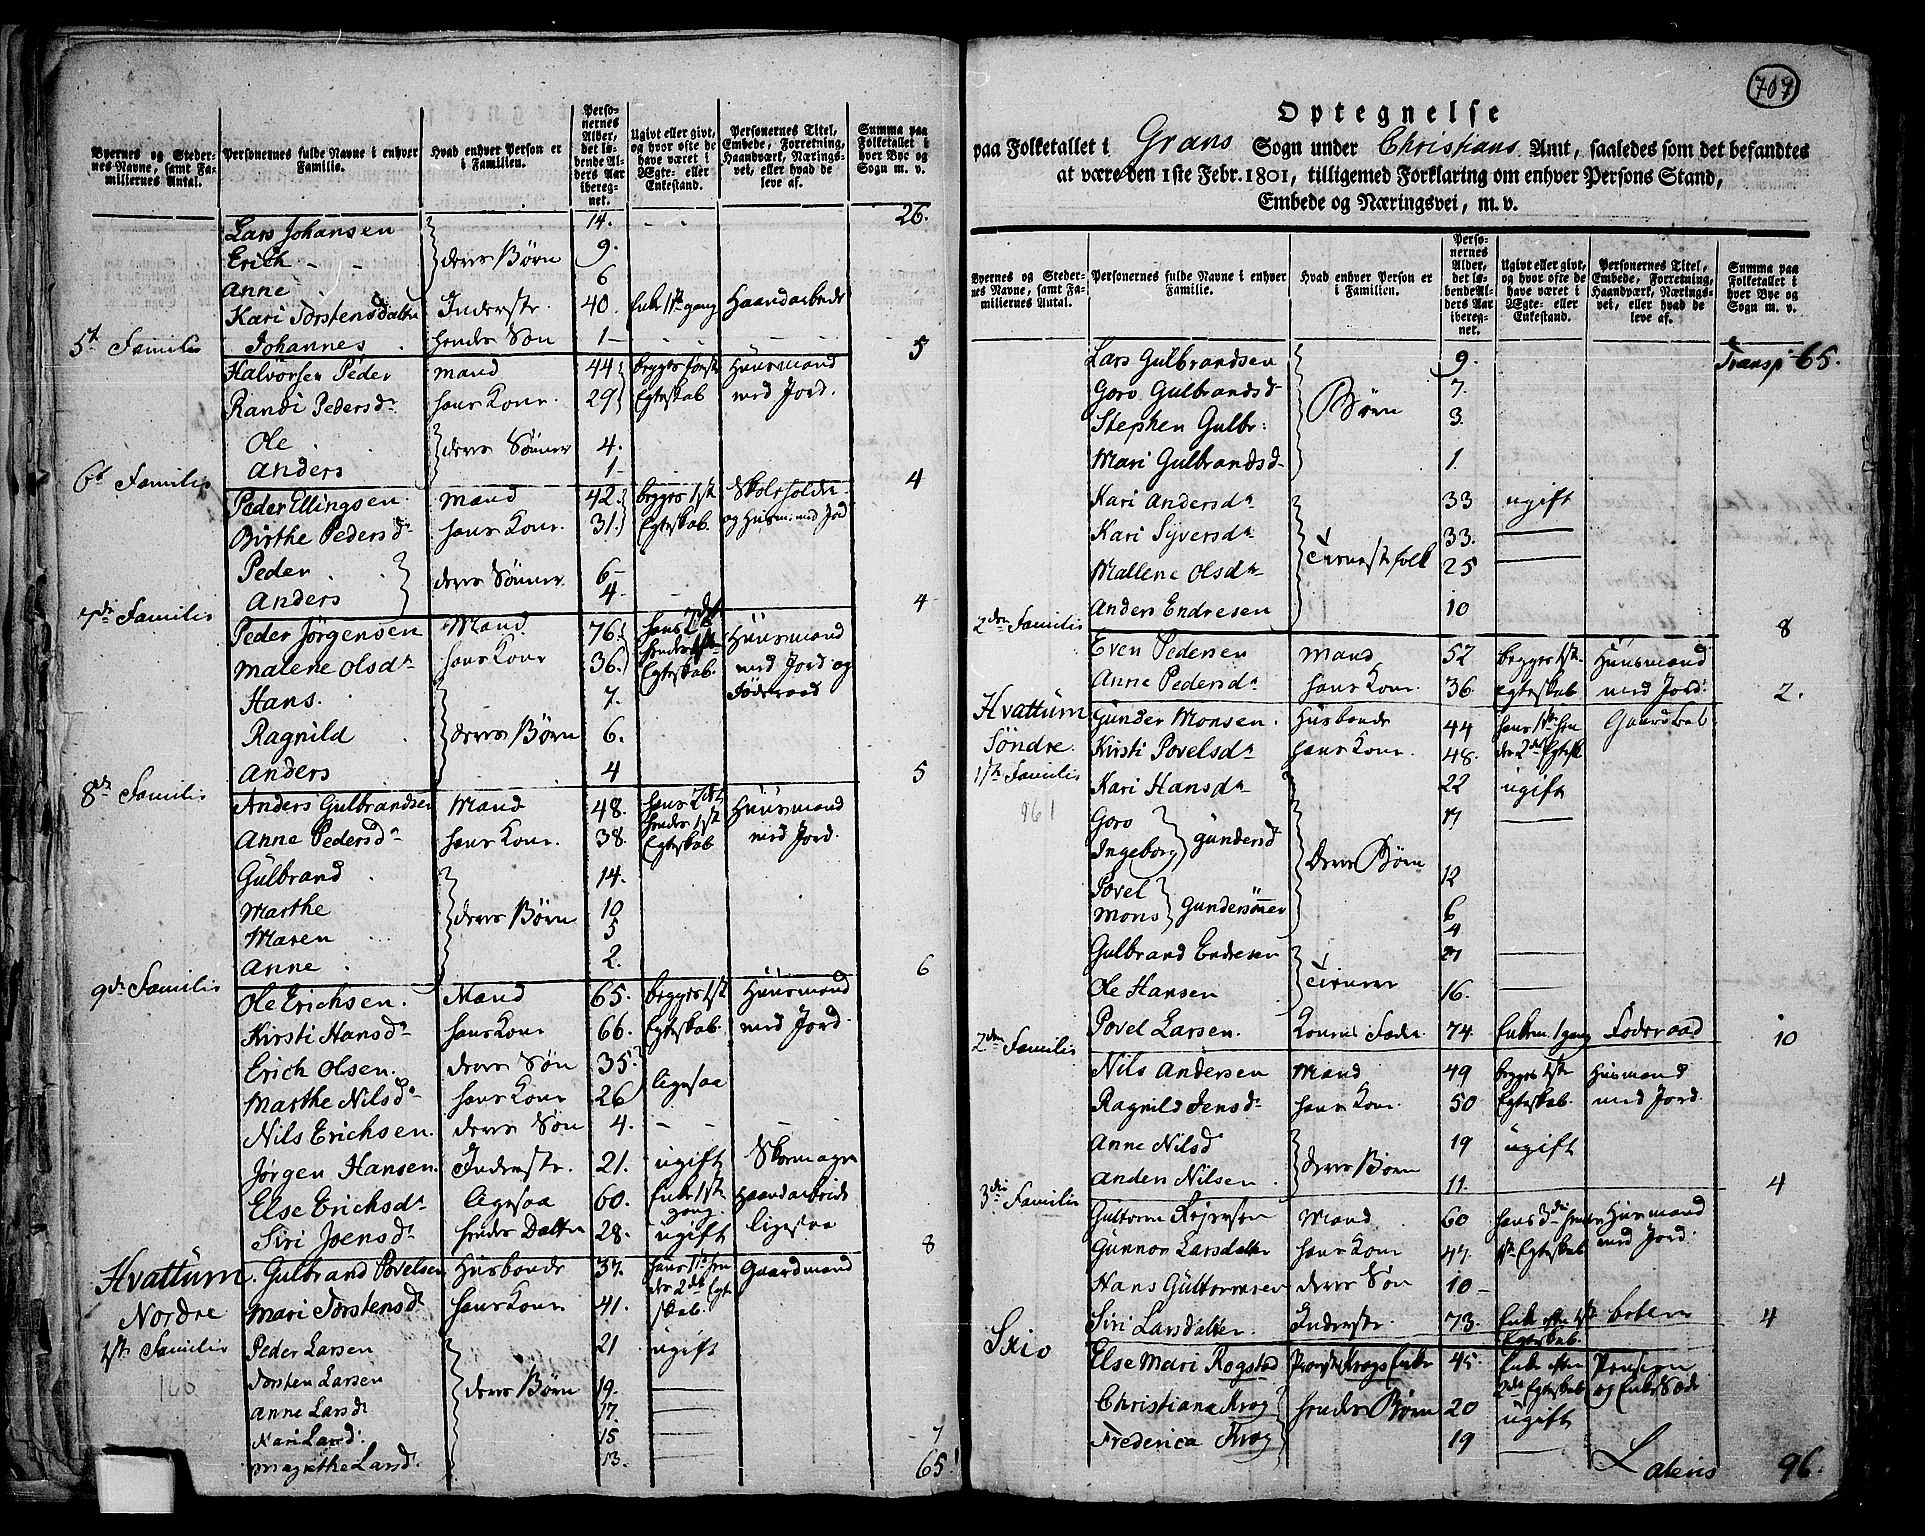 Byernes og Steder-
nes Navne, samt Fa-
miliernes Antal.
Personernes fulde Navne i enhver
Familie.
Hvad enhver Person er
i Familien.
Perso-
nernes
Alder,
det lø-
bende Al-
ders Aar
iberegnet.
Ugivt eller givt,
og hvor ofte de
have været i
Ægte- eller
Enkestand.
Personernes Titel,
Embede, Forretning,
Haandværk, Nærings-
vei, eller hvad de
leve af.
Summa paa
Folketallet i
hver Bye og
Sogn m. v.
26.
Lars Johansen 14.
Erich deres Børn 9.
Anne 6
Kari Torstensdatter Inderste 40. Enke 1ste gang Haandarbeide
5te Familie Johannes hendes Søn 1 5
Halvorsen Peder mand 44 begges første Huusmand
Randi Pedersdr hans Kone. 29 Egteskab med Jord.
Ole deres Sønner 4.
6te Familie Anders 1 4
Peder Ellingsen. mand 42. begges 1ste Skoleholder
Birthe Pedersdr hans Kone. 31. Egteskab. og Husm. med Jord
Peder deres Sønner 6
7de Familie Anders 4 4
Peder Jörgensen Mand 76. hans 2det Huusmand
Malene Olsdr hans Kone 36. hendes 1ste Egteskab. med Jord og
Hans. 7. Föderaad
Ragnild deres Børn 6.
8de Familie Anders 4 5
Anders Gulbrandsen Mand 48. hans 2det Huusmand
Anne Pedersdr hans Kone. 38. hendes 1ste Egteskab med Jord.
Gulbrand 14.
Marthe deres Børn 10
Maren 5
Anne 2. 6
9de Familie
Ole Erichsen. Mand 65. begges 1ste Huusmand
Kirsti Hansdr hans Kone 66. Egteskab. med Jord.
Erich Olsen. deres Søn 35
Marthe Nilsdr hans Kone 26 ligesaa
Nils Erichsen. deres Søn 4.
Jørgen Hansen. Inderste. 21. ugift Skomager
Else Erichsdr ligesaa 60. Enke 1ste gang. Haandarbeide
Siri Joensdr hendes Datter 28. ugift ligesaa 8
Hvattum. Gulbrand Povelsen Husbonde 37. hans 1ste hen Gaardmand
Nordre Mari Torstensdr hans Kone 41. des 2det Egte skab.
1ste Familie Peder Larsen 21 ugift
160 Torsten Larsen deres Børn 19.
Anne Larsdr 17.
Kari Larsd. 15 7
Magrethe Larsd. 13. 65.
709
Optegnelse
paa Folketallet i Grans Sogn under Christians Amt, saaledes som det befandtes
at være den 1ste Febr. 1801, tilligemed Forklaring om enhver Persons Stand,
Embede og Næringsvei, m. v.
Byernes og Steder-
nes Navne, samt Fa-
miliernes Antal.
Personernes fulde Navne i enhver
Familie.
Hvad enhver Person er
i Familien.
Perso-
nernes
Alder,
det lø-
bende Al-
ders Aar
iberegnet.
Ugivt eller givt,
og hvor ofte de
have været i
Ægte- eller
Enkestand.
Personernes Titel,
Embede, Forretning,
Haandværk, Nærings-
vei, eller hvad de
leve af.
Summa paa
Folketallet i
hver Bye og
Sogn m. v.
Lars Gulbrandsen 9. Transp 65.
Goro Gulbrandsd 7.
Stephen Gulbr: Børn 3.
Mari Gulbrandsd 1.
Kari Andersdr 33 ugift
Kari Syversdr 33.
Mallene Olsdr Tienestefolk 25
2den Familie Anders Endresen 10 8
Even Pedersen Mand 52 begges 1ste Huusmand
Anne Pedersdr hans Kone. 36. Egteskab med Jord. 2.
Hvattum Gunder Monsen. Husbonde 44 hans 1ste hen Gaardbel.
Søndre. Kirsti Povelsdr hans Kone. 48. des 2det Egtesk
1ste Familie Kari Hansdr 22 ugift
161 Goro 17
Ingeborg Gundersd deres Børn 12
Povel 6
Mons Gundersönner 4
Gulbrand Endresen Tienere 21
Ole Hansen 16.
Povel Larsen. Konens Fader 74. Enkem. 1 gang Föderaad 10
2den Familie
Nils Andersen Mand 49 begges 1ste Husmand
Ragnild Jensdr hans Kone. 50 Egteskab. med Jord.
Anne Nilsd 19 ugift
Anders Nilsen. deres Børn 11. 4
3die Familie
Guttorm Mand 60 hans 3die hendes Husmand
Gunnor Larsdatter hans Kone 47. 1ste Egteskab med Jord.
Hans Guttormsen deres Søn 10
Siri Larsdatter. Inderste. 73. Enke efter 1ste Egteskab. betler 4
Skio
Else Mari Rogstad Krogs Enke 45. Enke efter Pension
Christiana Krog hendes Børn 20 2det Egteskab og Enke Sæde
ugift
Frederica Krog 19
Lateris 96.